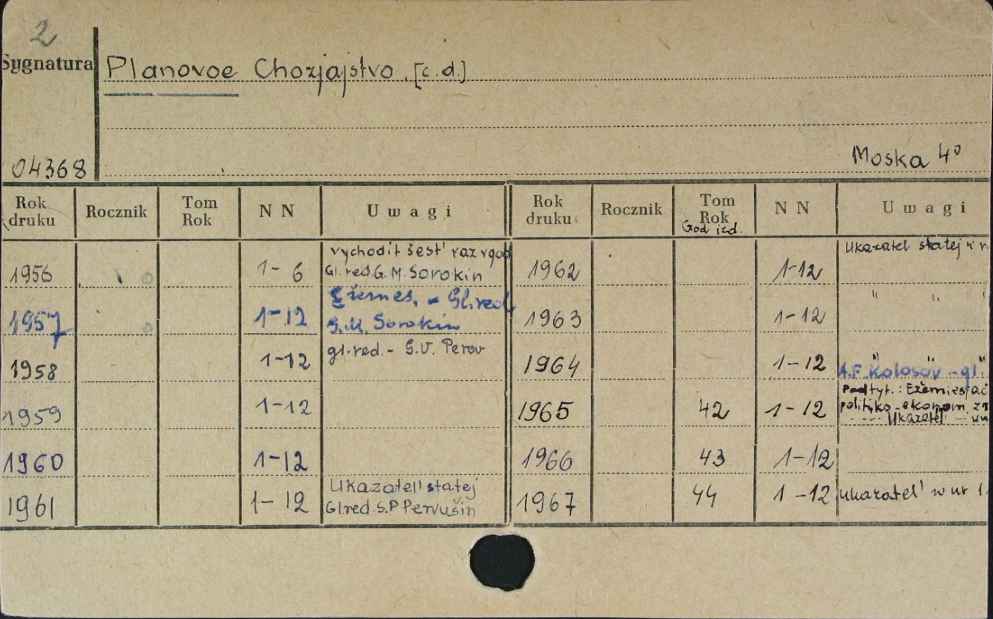 2
Sygnatura Planovoe Chozjajstvo [c.d.]
04368 Moska 4°
Rok druku Rocznik Tom Rok NN Uwagi Rok druku Rocznik Tom Rok God izd. NN Uwagi
1956 1-6 vychodit šest' raz v god
Gl. red. G.M. Sorokin
1962 1-12 Ukazatel statej v n
1957 1-12 Ežemes. - Gl. red
G.M. Sorokin
1963 1-12 " " "
1958 1-12 gl. red. - G.V. Perov
1964 1-12 " "
A.F. Kolosov - gl.
1959 1-12
1965 42 1-12 Podtyt.: Ežemiesač
politiko-ekonom
Ukazatel
1960 1-12
1966 43 1-12
1961 1-12 Ukazatel' statej
Gl red. S.P Pervušin
1967 44 1-12 ukazatel' w nr 1